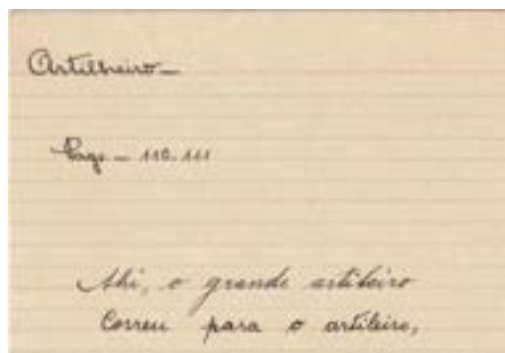 Artilheiro_
Pags. _ 110. 111
Ahi, o grande artileiro
Correu para o artileiro,